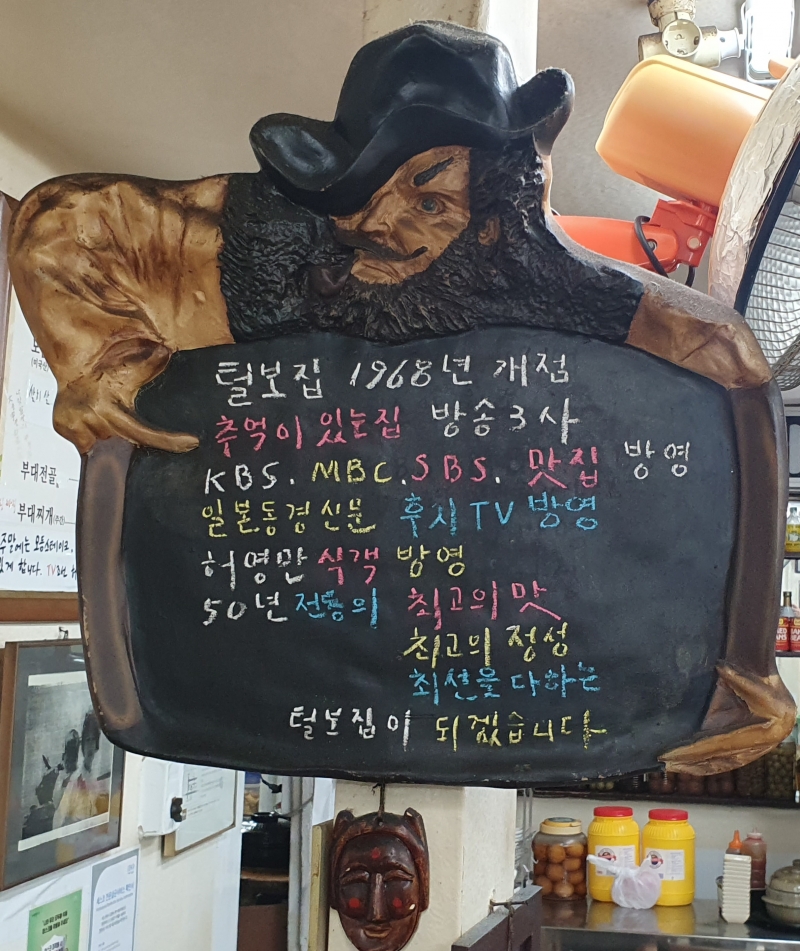 털보집 1968년 개점
추억이 있는집 방송3사
KBS. MBC. SBS. 맛집 방영
일본동경신문 후지TV 방영
허영만 식객 방영
50년 전통의 최고의 맛
최고의 정성
최선을 다하는
털보집이 되겠습니다
부대전골
부대찌개